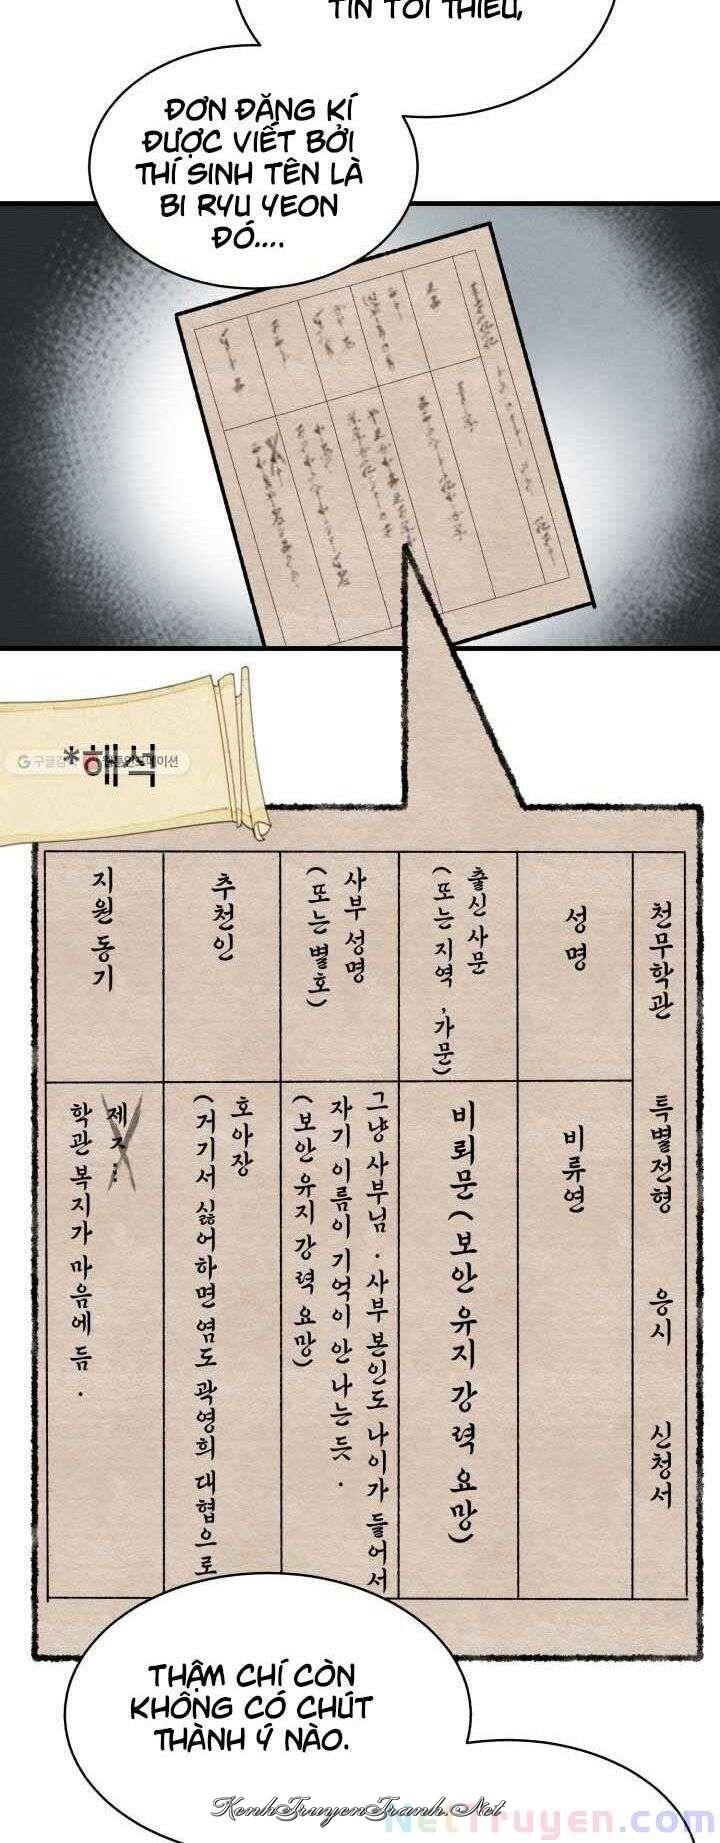 TIN TỐI THIỂU,
ĐƠN ĐĂNG KÍ
ĐƯỢC VIẾT BỞI
THÍ SINH TÊN LÀ
BI RYU YEON
ĐÓ....
*해석
천무학관 특별전형 응시 신청서
성명
비류연
출신 사문
(또는 지역, 가문)
비뢰문(보안 유지 강력 요망)
사부 성명
(또는 별호)
그냥 사부님. 사부 본인도 나이가 들어서
자기 이름이 기억이 안 나는 듯.
(보안 유지 강력 요망)
추천인
호아장
(거기서 싫어하면 염도 곽영희 대협으로
지원 동기
학관 복지가 마음에 듬.
THẬM CHÍ CÒN
KHÔNG CÓ CHÚT
THÀNH Ý NÀO.
KenhTruyenTranh.Net
NetTruyen.com